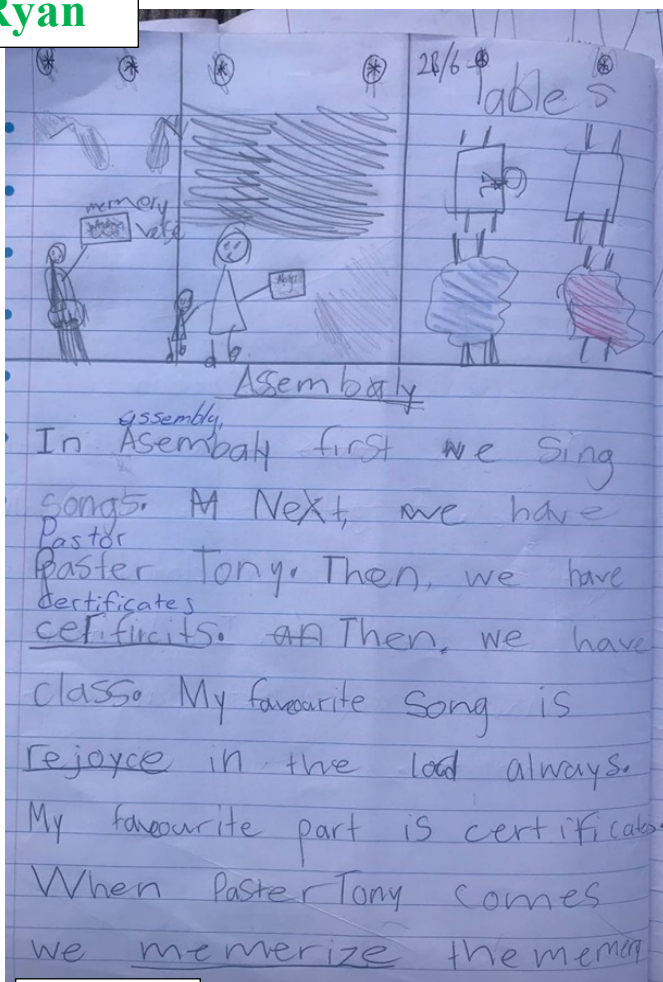 Ryan
28/6
Tables
memory
verse
Asembaly
assembly,
In Asembaly first we sing
songs. Next, we have
Pastor
Paster Tony. Then, we have
certificates
cerfificits. an Then, we have
class. My favourite song is
rejoyce in the lord always.
My favourite part is certificates.
When Paster Tony comes
we memerize the memory